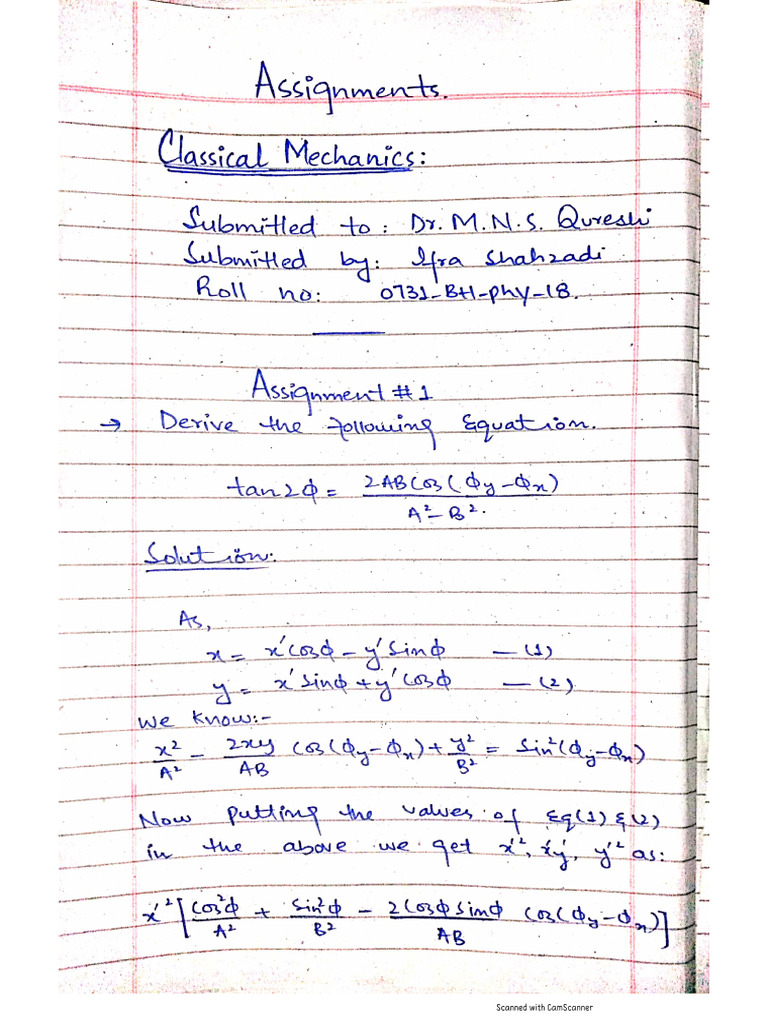 Assignments.
Classical Mechanics:
Submitted to: Dr. M.N.S. Qureshi
Submitted by: Ifra Shahzadi
Roll no: 0731-BH-phy-18.
Assignment #1
→ Derive the following Equation.
tan2ϕ = 2ABCos(ϕy-ϕx) / A²-B².
Solution:
As,
x = x'Cosϕ - y'Sinϕ — (1)
y = x'Sinϕ + y'Cosϕ — (2)
We know:-
x²/A² - 2xy/AB Cos(ϕy-ϕx) + y²/B² = Sin²(ϕy-ϕx)
Now putting the values of Eq(1) & (2)
in the above we get x'², x'y', y'² as:
x'² [Cos²ϕ/A² + Sin²ϕ/B² - 2CosϕSinϕ/AB Cos(ϕy-ϕx)]
Scanned with CamScanner